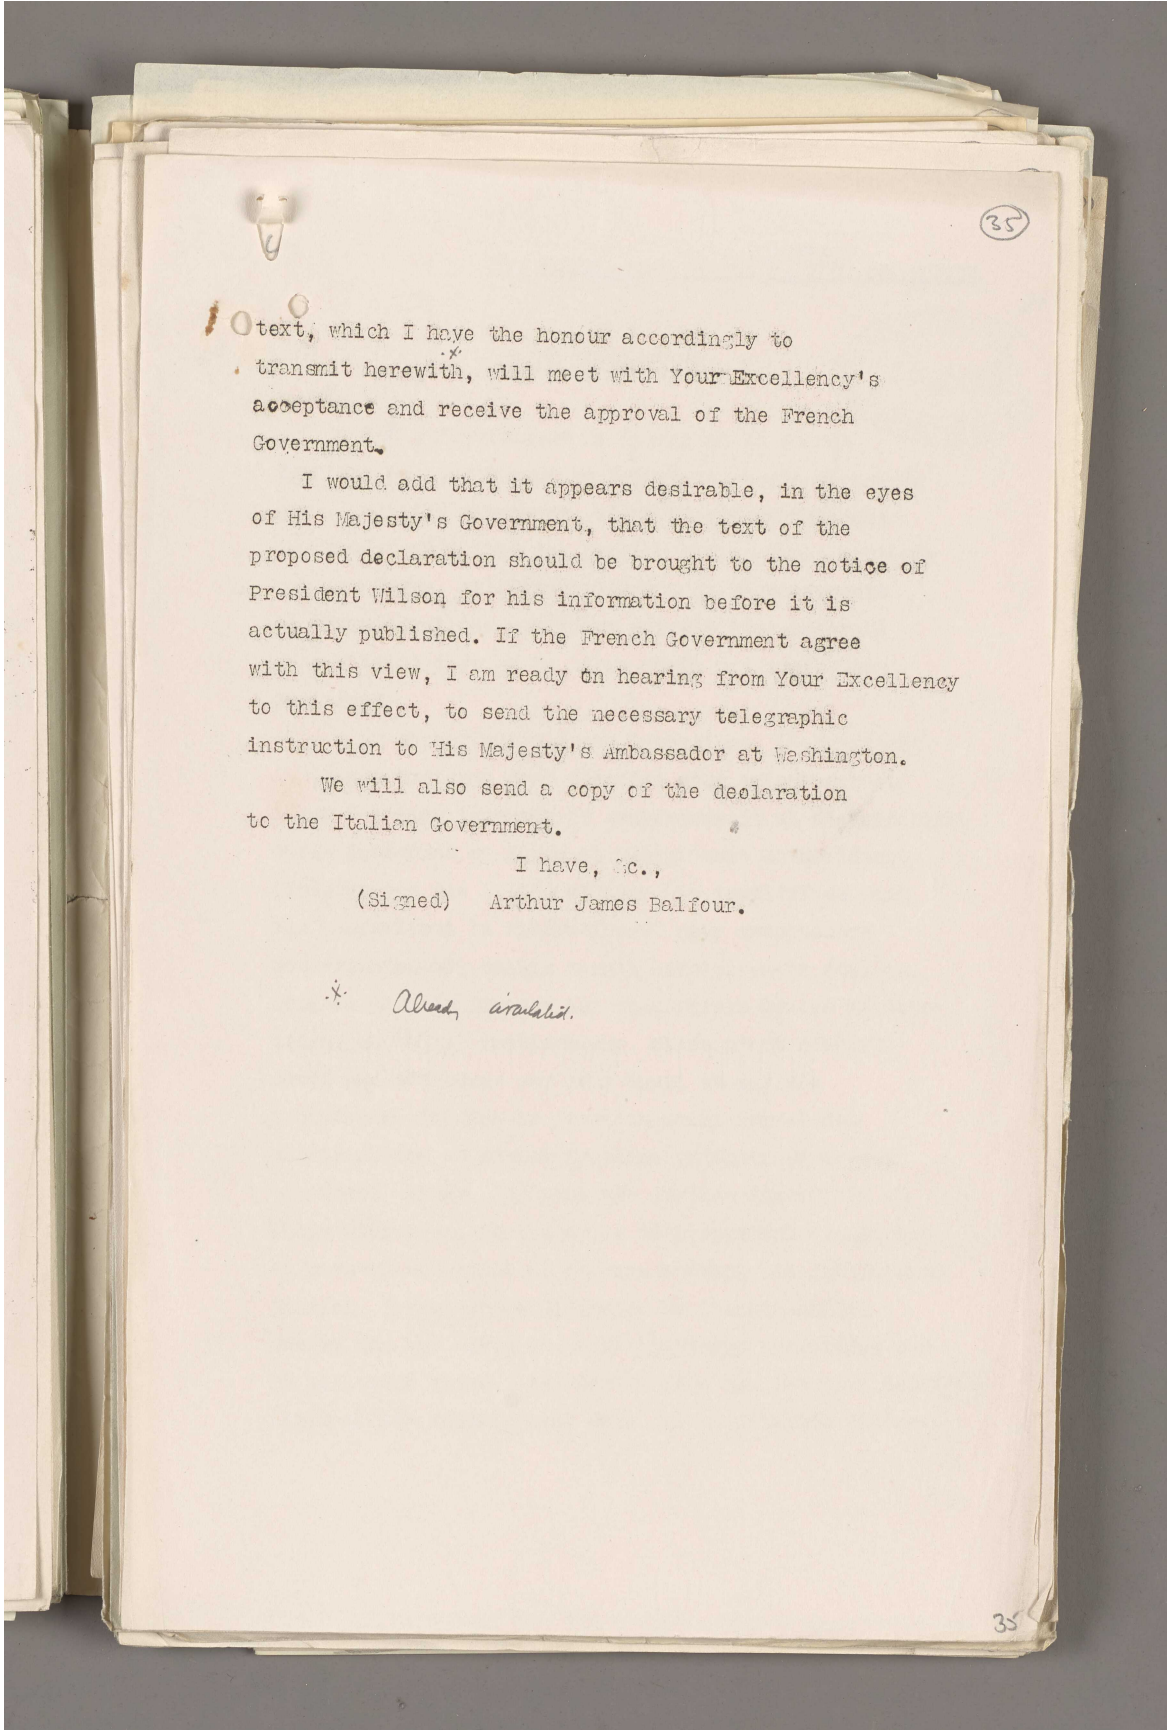 35
text, which I have the honour accordingly to
transmit herewith, will meet with Your Excellency's
acceptance and receive the approval of the French
Government.
I would add that it appears desirable, in the eyes
of His Majesty's Government, that the text of the
proposed declaration should be brought to the notice of
President Wilson for his information before it is
actually published. If the French Government agree
with this view, I am ready on hearing from Your Excellency
to this effect, to send the necessary telegraphic
instruction to His Majesty's Ambassador at Washington.
We will also send a copy of the declaration
to the Italian Government.
I have, &c.,
(Signed) Arthur James Balfour.
Already
35